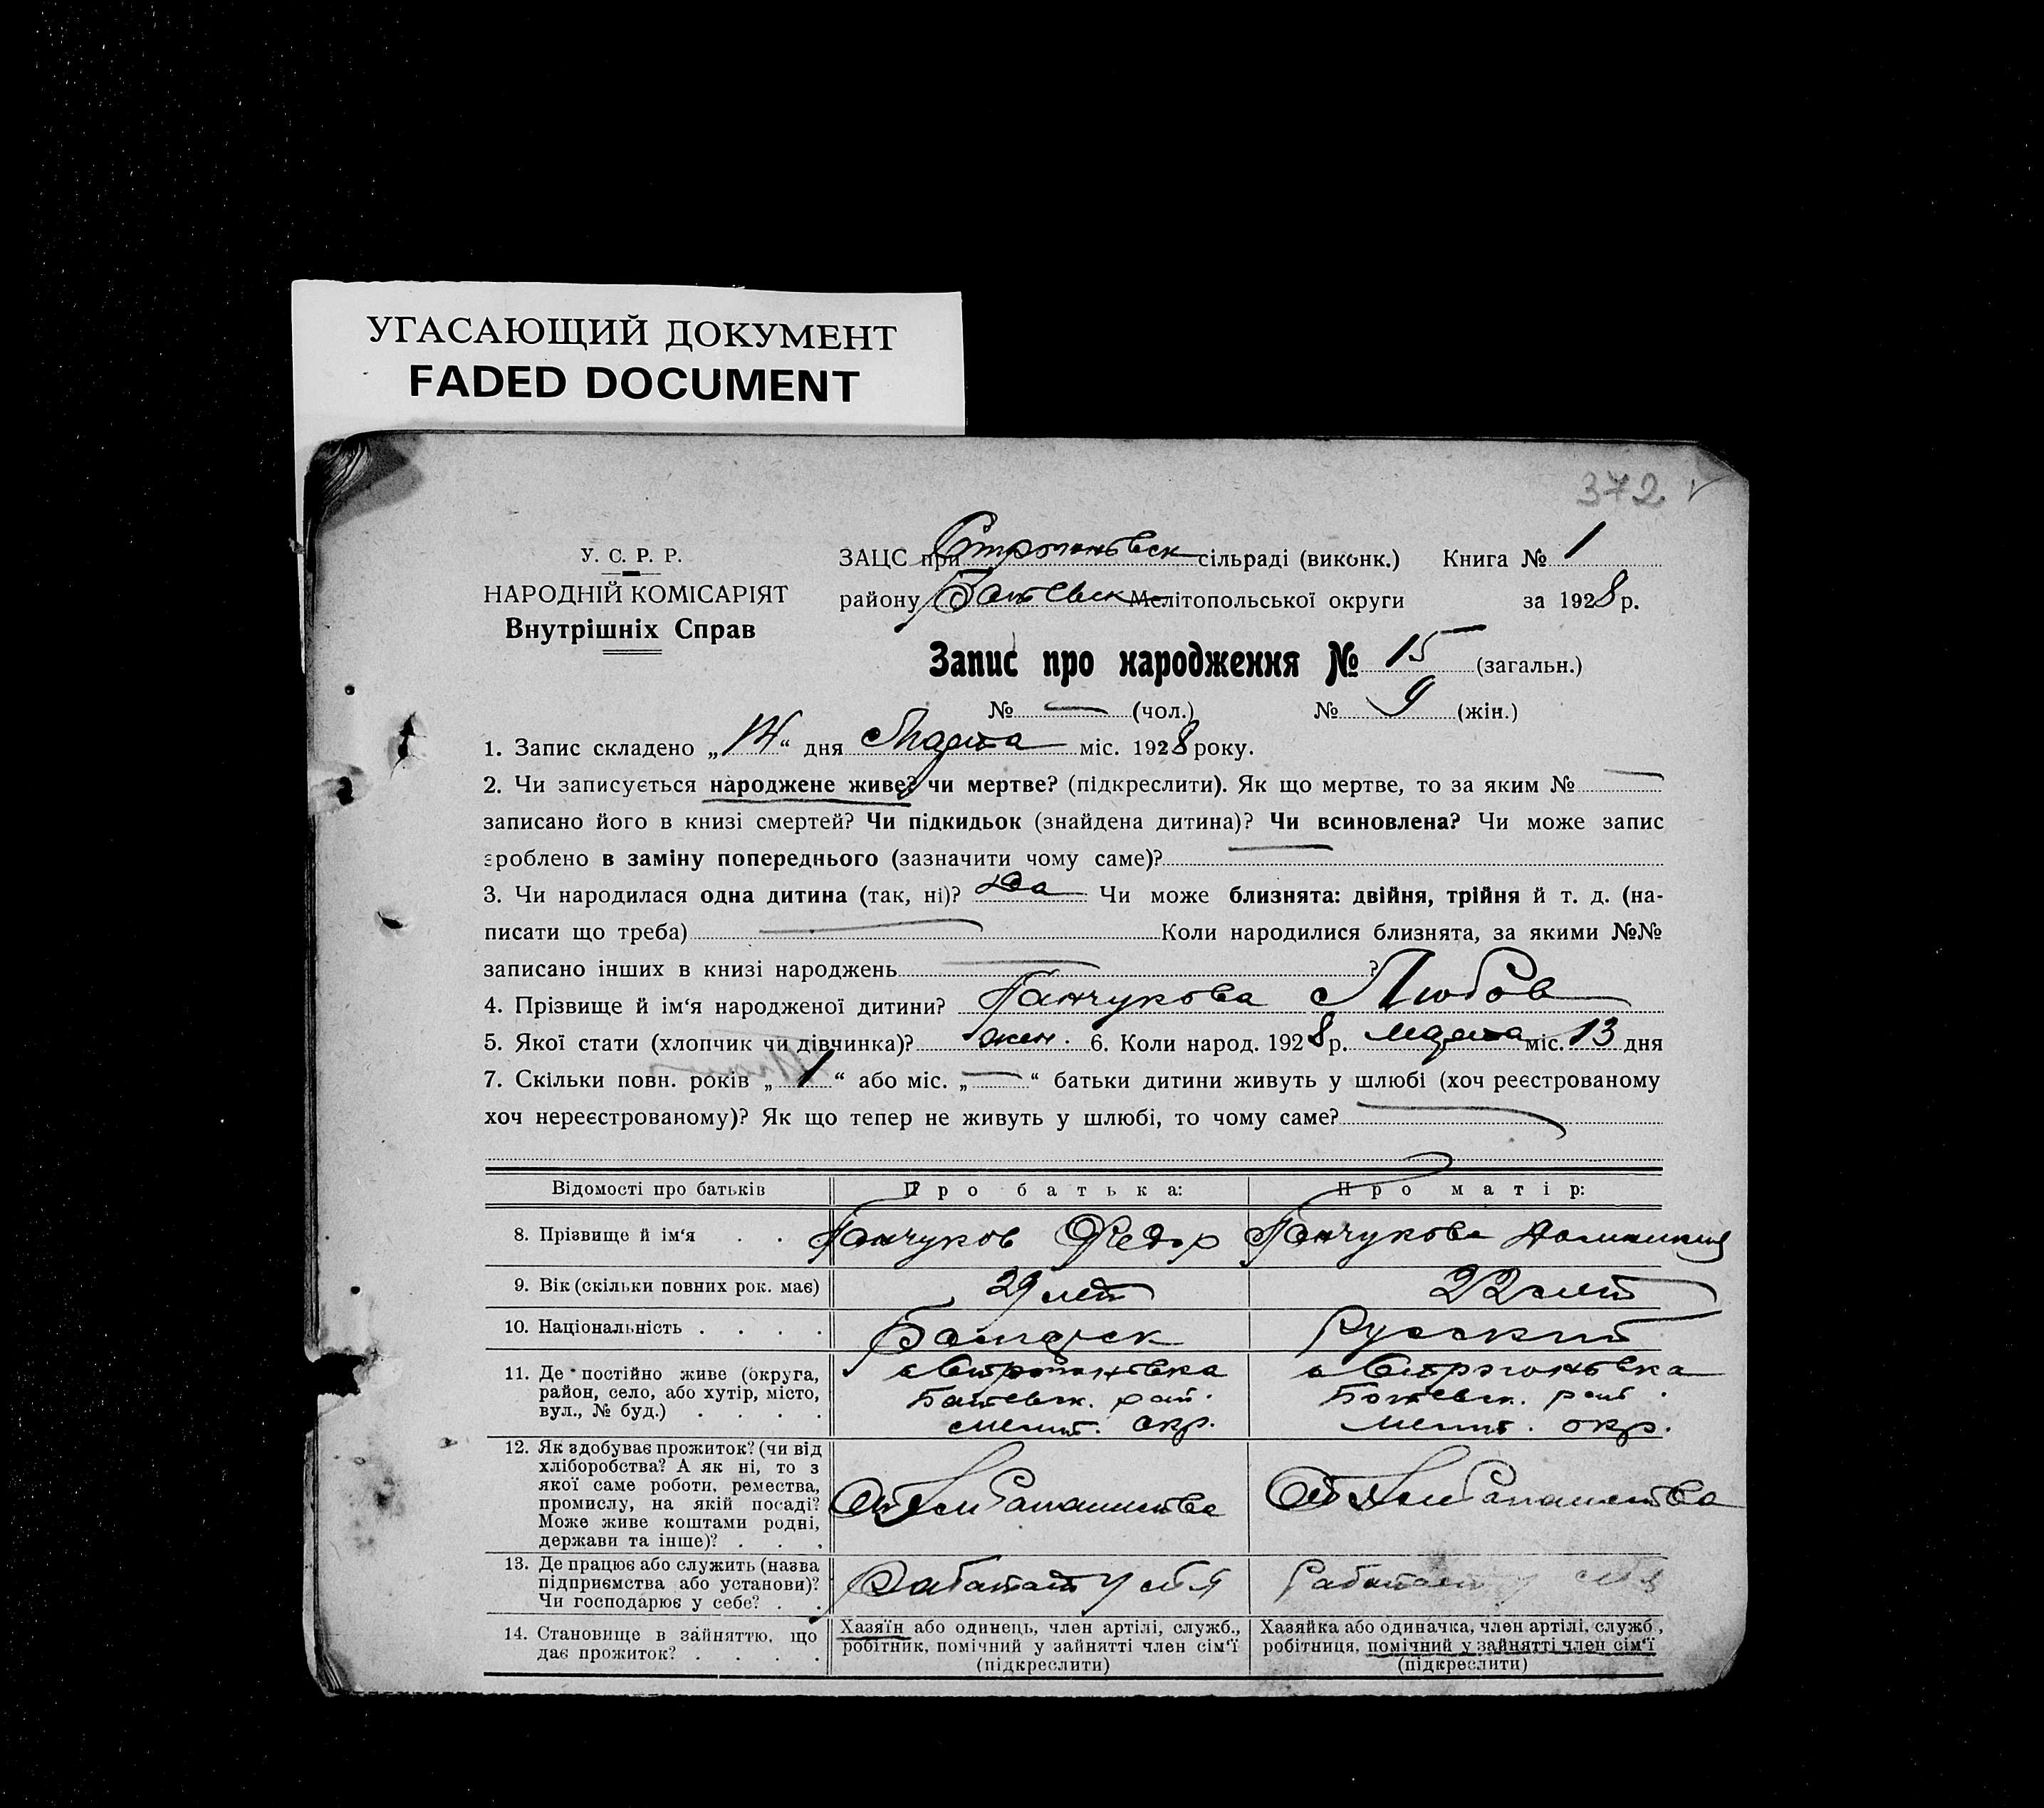 УГАСАЮЩИЙ ДОКУМЕНТ
FADED DOCUMENT
372
У. С. Р. Р.
НАРОДНІЙ КОМІСАРІЯТ
Внутрішніх Справ
ЗАЦС при сільраді (виконк.) Книга № 1
району Мелітопольської округи за 1928 р.
Запис про народження № 15 (загальн.)
№ — (чол.) № 9 (жін.)
1. Запис складено „14“ дня Марта міс. 1928 року.
2. Чи записується народжене живе? чи мертве? (підкреслити). Як що мертве, то за яким № —
записано його в книзі смертей? Чи підкидьок (знайдена дитина)? Чи всиновлена? Чи може запис
зроблено в заміну попереднього (зазначити чому саме)?
3. Чи народилася одна дитина (так, ні)? Да Чи може близнята: двійня, трійня й т. д. (на-
писати що треба) — Коли народилися близнята, за якими №№
записано інших в книзі народжень — ?
4. Прізвище й ім‘я народженої дитини? Ганчукова Любов
5. Якої стати (хлопчик чи дівчинка)? жен. 6. Коли народ. 1928 р. марта міс. 13 дня
7. Скільки повн. років „1“ або міс. „—“ батьки дитини живуть у шлюбі (хоч реєстрованому
хоч нереєстрованому)? Як що тепер не живуть у шлюбі, то чому саме? —
Відомості про батьків Про батька: Про матір:
8. Прізвище й ім‘я . . Ганчуков Федор Ганчукова
9. Вік (скільки повних рок. має) 29 лет 22 лет
10. Національність . . . . Русский
11. Де постійно живе (округа,
район, село, або хутір, місто,
вул., № буд.) . . . .
мелит. окр. мелит. окр.
12. Як здобуває прожиток? (чи від
хліборобства? А як ні, то з
якої саме роботи, ремества,
промислу, на якій посаді?
Може живе коштами родні,
держави та інше)? . . .
13. Де працює або служить (назва
підприємства або установи)?
Чи господарює у себе? . .
14. Становище в зайняттю, що
дає прожиток? . . . .
Хазяїн або одинець, член артілі, служб.,
робітник, помічний у зайнятті член сім‘ї
(підкреслити)
Хазяйка або одиначка, член артілі, служб.,
робітниця, помічний у зайнятті член сім‘ї
(підкреслити)